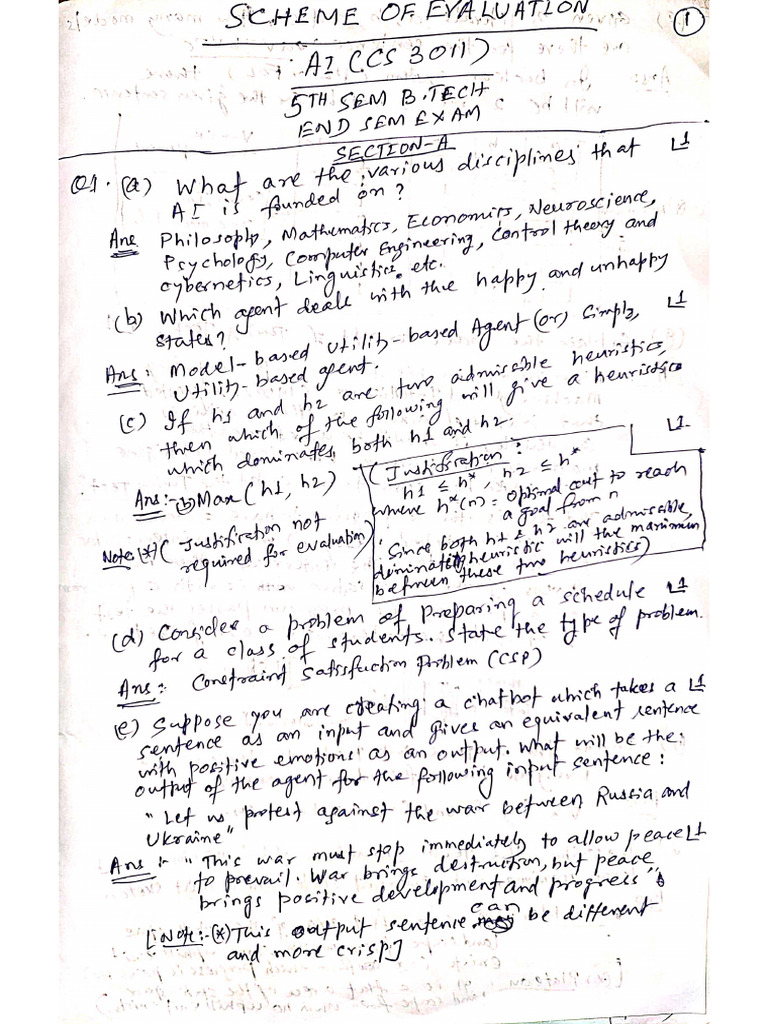 SCHEME OF EVALUATION
1
AI (CS 3011)
5TH SEM B.TECH
END SEM EXAM
SECTION-A
Q1. (a) What are the various disciplines that L1
AI is founded on?
Ans Philosophy, Mathematics, Economics, Neuroscience,
Psychology, Computer Engineering, Control theory and
cybernetics, Linguistics. etc.
(b) Which agent deals with the happy and unhappy
states? L1
Ans: Model-based Utility-based Agent (or) Simply,
Utility-based agent.
(c) If h1 and h2 are two admissible heuristics,
then which of the following will give a heuristics
which dominates both h1 and h2. L1
Ans:- b) Max (h1, h2)
Note:(*) (Justification not
required for evaluation)
(Justification:
h1 ≤ h*, h2 ≤ h*
where h*(n) = optimal cost to reach
a goal from n
Since both h1 & h2 are admissible,
dominating heuristic will the maximum
between these two heuristics)
(d) Consider a problem of preparing a schedule L1
for a class of students. State the type of problem.
Ans: Constraint Satisfaction Problem (CSP)
(e) Suppose you are creating a chatbot which takes a L1
sentence as an input and gives an equivalent sentence
with positive emotions as an output. What will be the
output of the agent for the following input sentence:
"Let us protest against the war between Russia and
Ukraine"
Ans:- "This war must stop immediately to allow peace L1
to prevail. War brings destruction, but peace
brings positive development and progress"
[Note:-(*) This output sentence can be different
and more crisp]